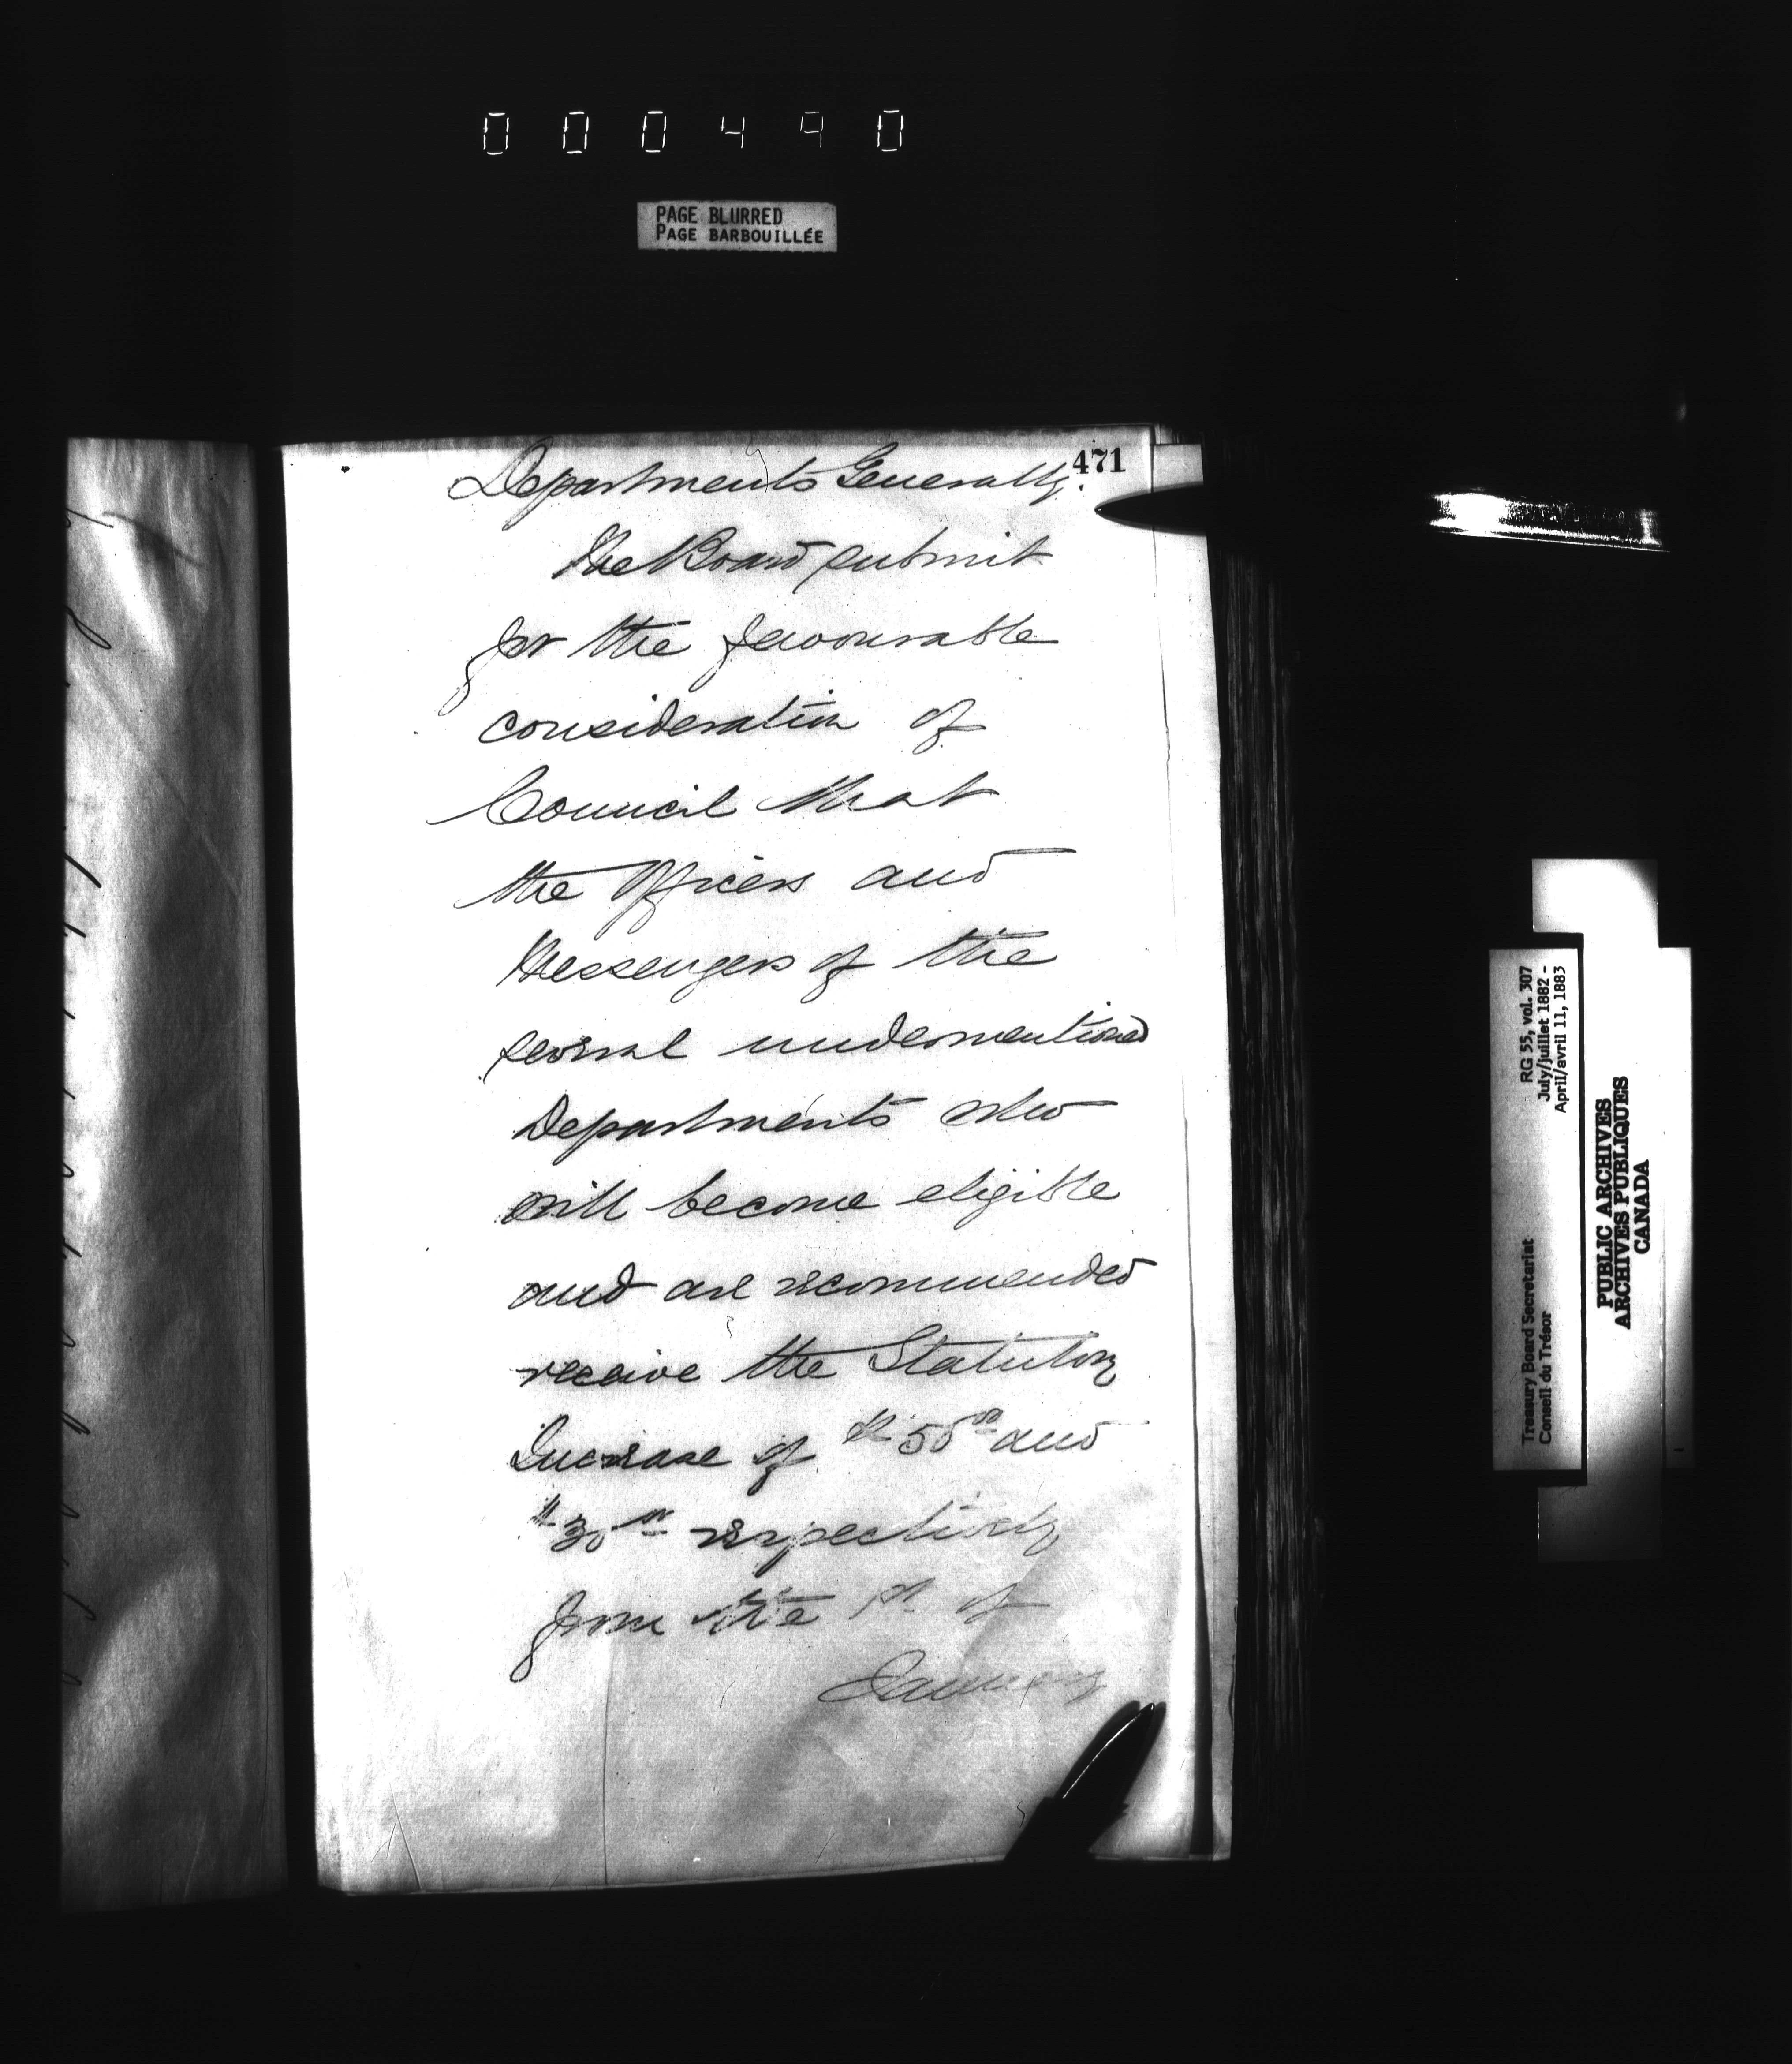 000490
PAGE BLURRED
PAGE BARBOUILLÉE
471
Departments Generally.
The Board submit
for the favourable
consideration of
Council that
the Officers and
Messengers of the
several undermentioned
Departments who
will become eligible
and are recommended
receive the Statutory
Increase of $50 00 and
$30 00 respectively
from the 1st of
January
RG 55, vol. 307
July/juillet 1882 -
April/avril 11, 1883
Treasury Board Secretariat
Conseil du Trésor
PUBLIC ARCHIVES
ARCHIVES PUBLIQUES
CANADA